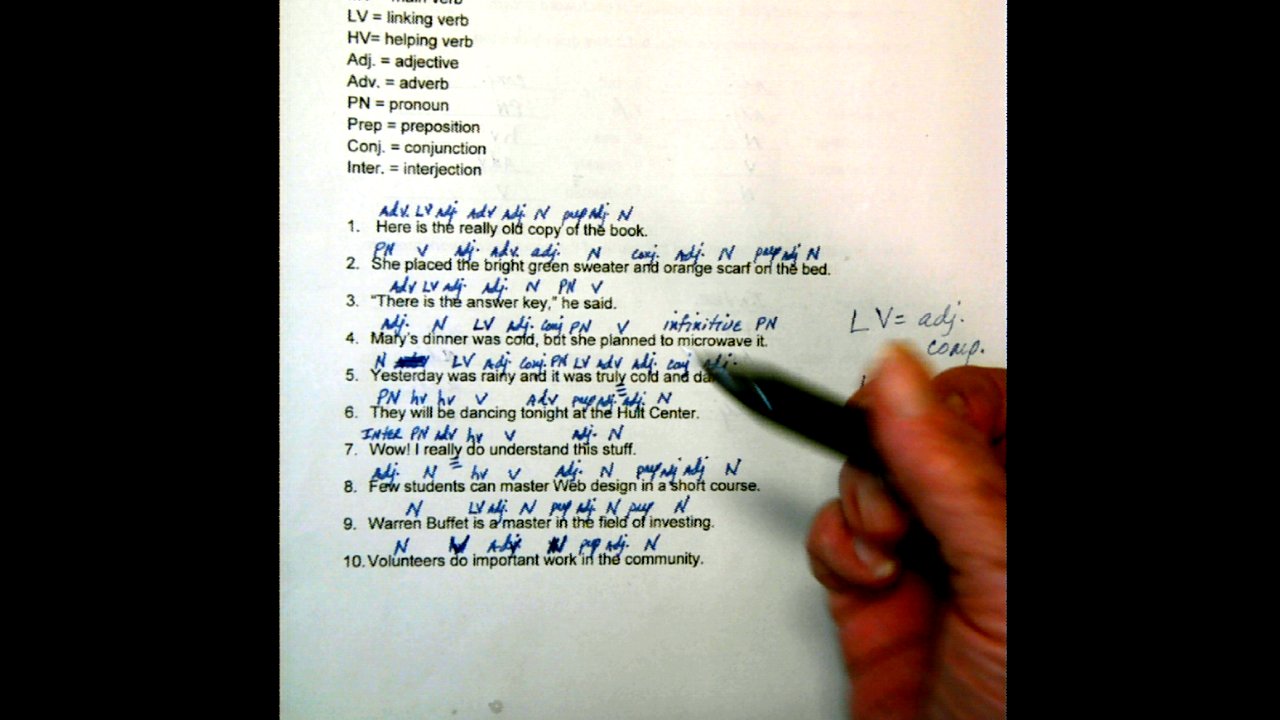 main verb
LV = linking verb
HV= helping verb
Adj. = adjective
Adv. = adverb
PN = pronoun
Prep = preposition
Conj. = conjunction
Inter. = interjection
Adv. LV Adj Adv Adj. N prep adj N
1. Here is the really old copy of the book.
PN V Adj. Adv. adj. N conj. Adj. N prep adj N
2. She placed the bright green sweater and orange scarf on the bed.
Adv LV adj. Adj. N PN V
3. "There is the answer key," he said.
Adj. N LV Adj. conj PN V infinitive PN
4. Mary's dinner was cold, but she planned to microwave it.
LV= adj.
comp.
N LV Adj. Conj. PN LV Adv Adj. conj Adj.
5. Yesterday was rainy and it was truly cold and
PN hv hv V Adv prep adj. adj. N
6. They will be dancing tonight at the Hult Center.
INter PN adv hv V Adj. N
7. Wow! I really do understand this stuff.
adj. N hv V Adj. N prep adj adj N
8. Few students can master Web design in a short course.
N LV adj. N prep adj. N prep N
9. Warren Buffet is a master in the field of investing.
N Adj. N prep Adj. N
10. Volunteers do important work in the community.